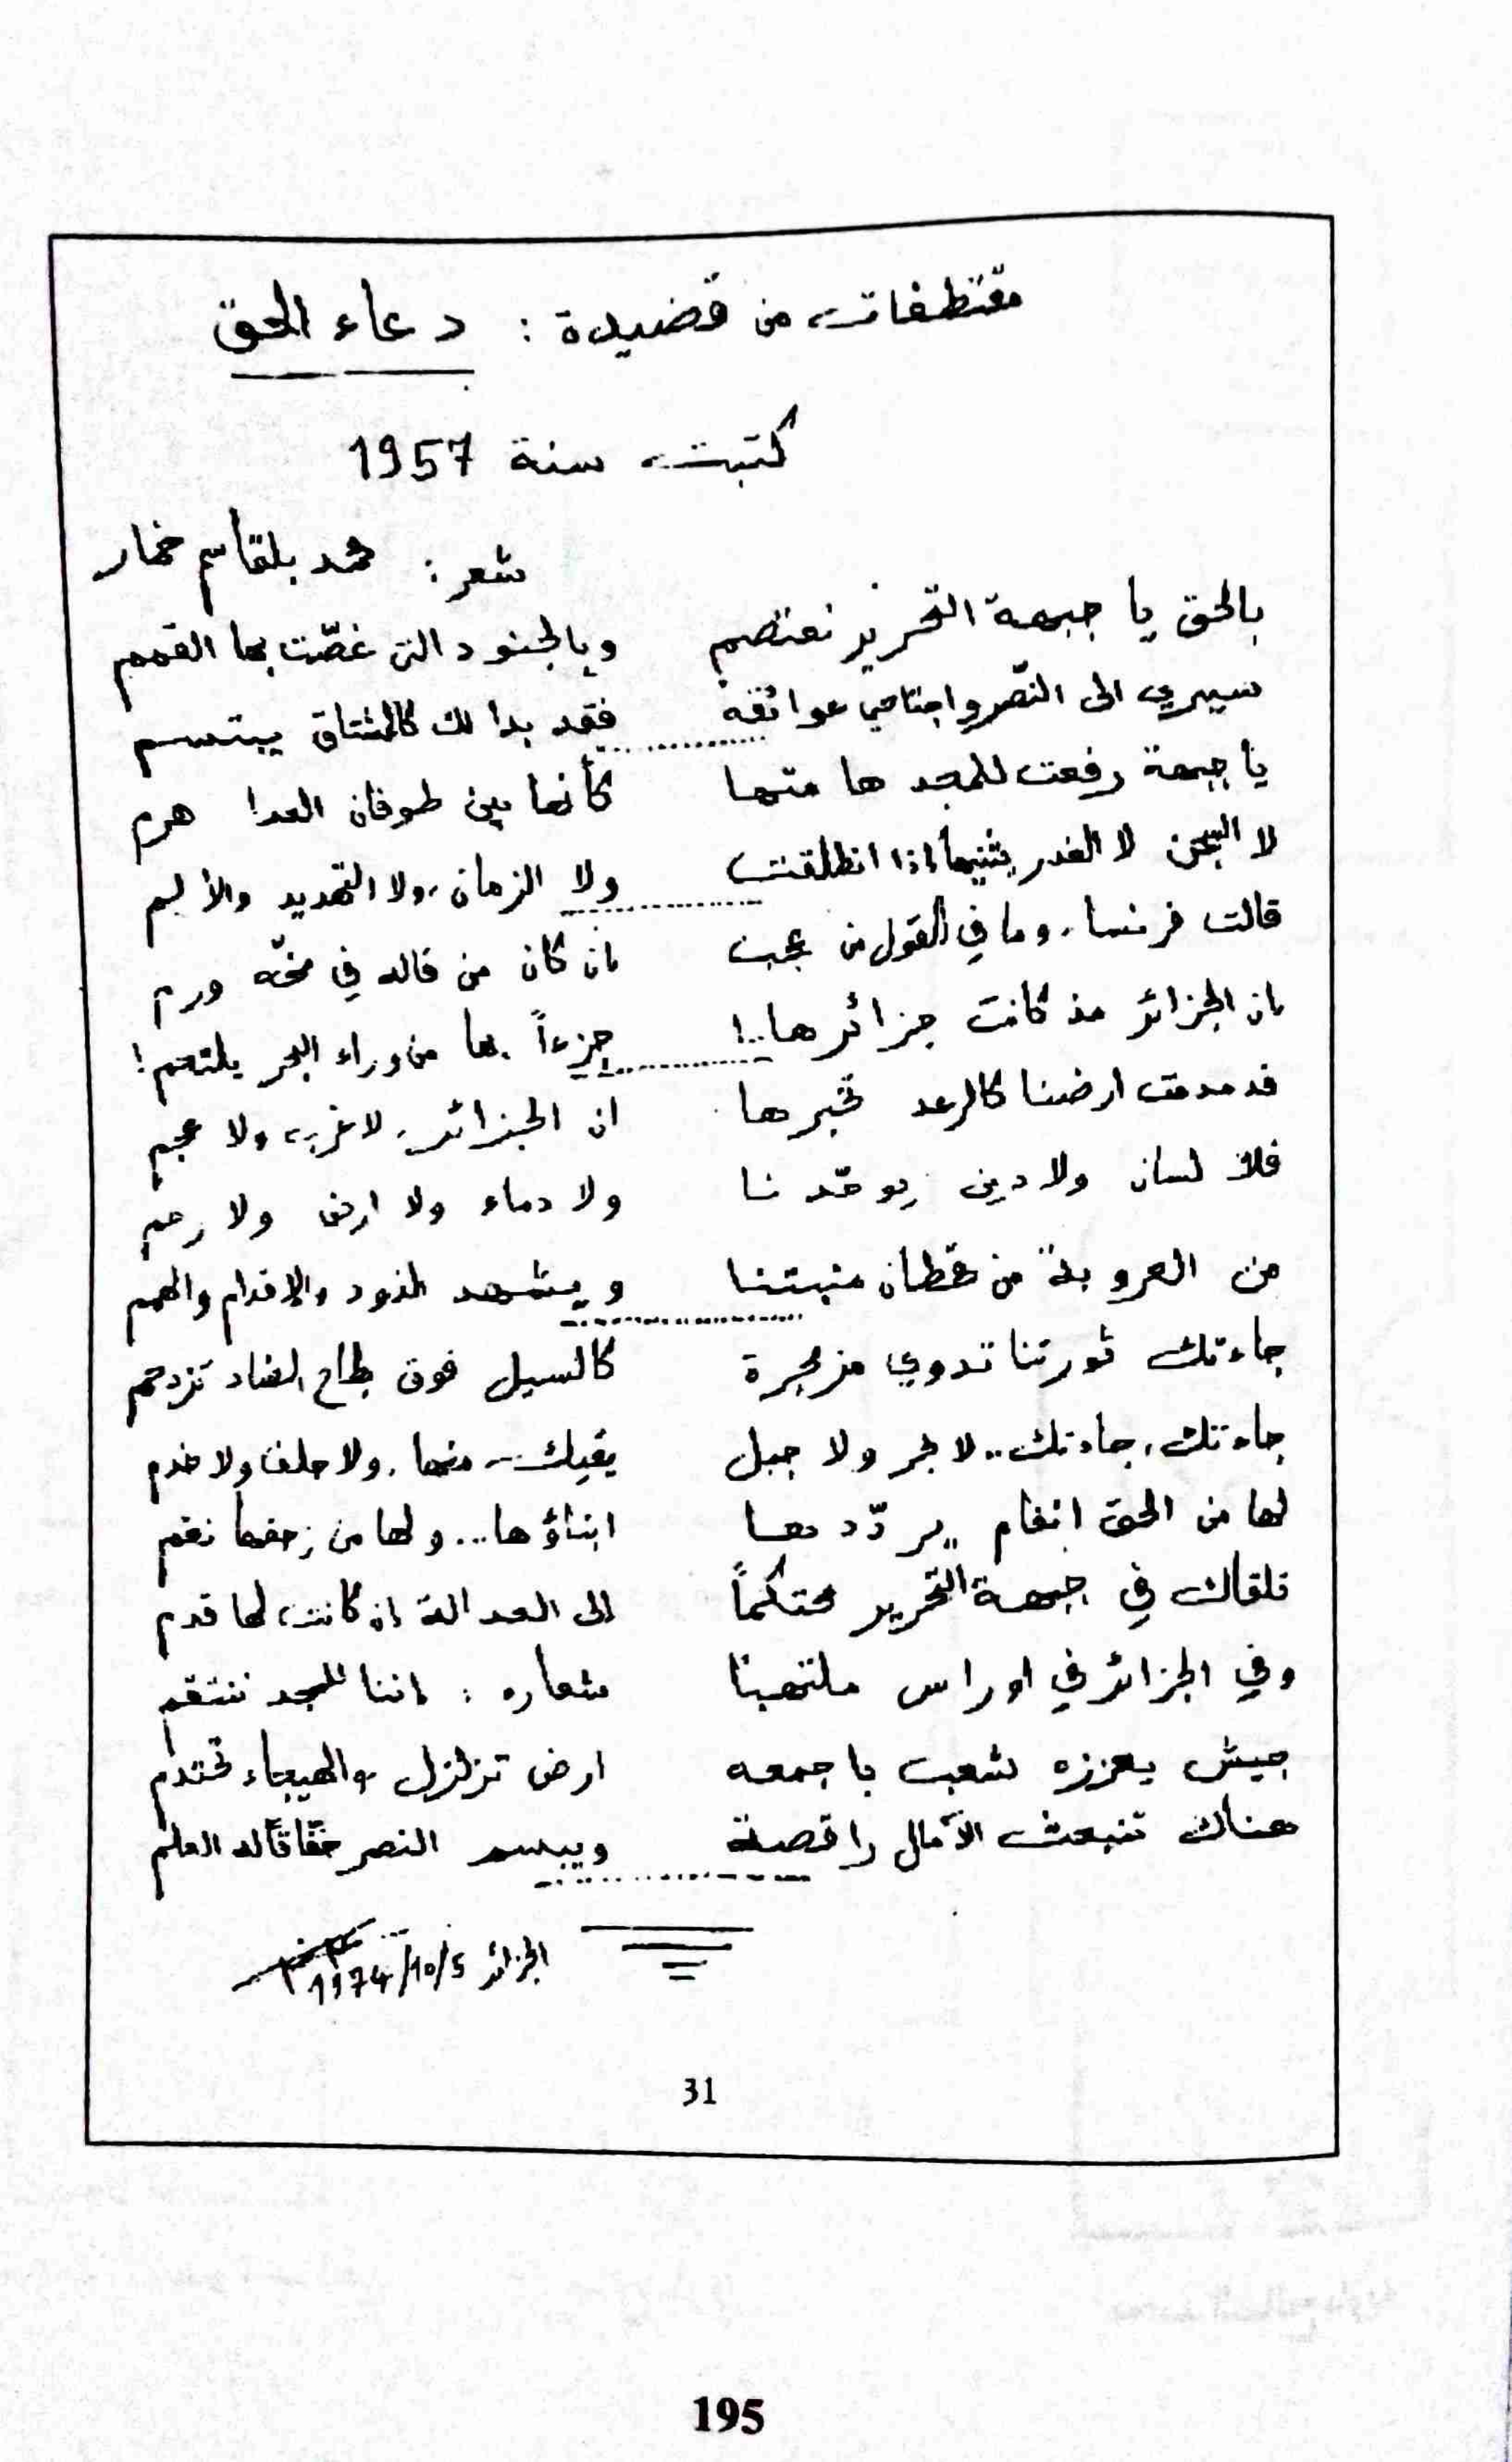 مقتطفات من قصيدة : دعاء الحق
كتبت سنة 1957
شعر : محمد بلقاسم خمار
بالحق يا جبهة التحرير نعتصم وبالجنود التي غصّت بها القمم
سيري الى النّصر واجتاحي عوائقه فقد بدا لك كالمشتاق يبتسم
يا جبهة رفعت للمجد هامتها كأنها بين طوفان العدا هرم
لا السجن لا الغدر يثنيها إذا انطلقت ولا الزمان، ولا التهديد والألم
قالت فرنسا، وما في القول من عجب إن كان من قاله في مخّه ورم
إن الجزائر مذ كانت جزائرها..! جزءاً بها من وراء البحر يلتحم!
فدمدمت ارضنا كالرعد تخبرها ان الجزائر، لا غرب ولا عجم
فلا لسان ولا دين يوحّدنا ولا دماء ولا ارض ولا رحم
من العروبة من قحطان منبتنا ويشهد الذود والإقدام والهمم
جاءتك ثورتنا تدوي مزمجرة كالسيل فوق بطاح الضاد تزدحم
جاءتك، جاءتك.. لا بحر ولا جبل يقيك منها، ولا حلف ولا خدم
لها من الحق انغام يردّدها ابناؤها... ولها من زحفها نغم
تلقاك في جبهة التحرير محتكماً إلى العدالة إن كانت لها قدم
وفي الجزائر في اوراس ملتهبا شعاره : إننا للمجد ننتقم
جيش يعززه شعب باجمعه ارض تزلزل والهيجاء تحتدم
هناك تنبعث الآمال راقصة ويبسم النصر خفّاقاً له العلم
الجزائر 5/10/1974
31
195